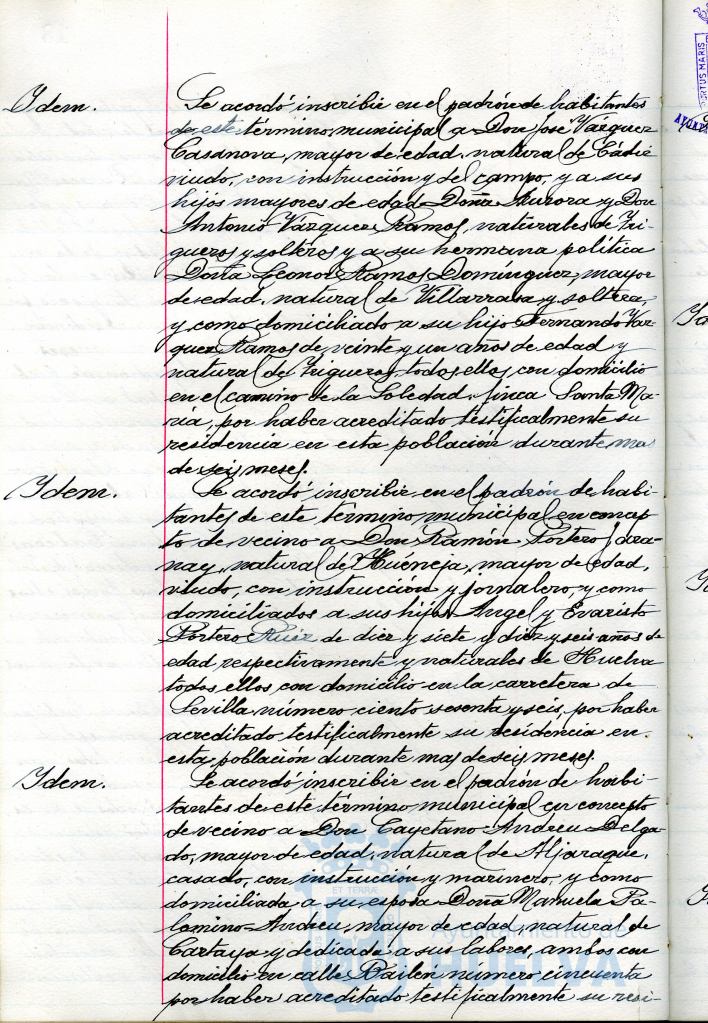 Idem.
Se acordó inscribir en el padrón de habitantes
de este término municipal a Don José Vázquez
Casanova, mayor de edad, natural de Cádiz
viudo, con instrucción y del campo, y a sus
hijos mayores de edad Doña Aurora y Don
Antonio Vázquez Ramos, naturales de Tri-
gueros y solteros y a su hermana política
Doña Leonor Ramos Domínguez, mayor
de edad, natural de Villarrasa y soltera,
y como domiciliado a su hijo Fernando Váz-
quez Ramos de veinte y un años de edad y
natural de Trigueros, todos ellos con domicilio
en el camino de la Soledad, finca Santa Ma-
ría, por haber acreditado testificalmente su
residencia en esta población durante mas
de seis meses.
Idem.
Se acordó inscribir en el padrón de habi-
tantes de este término municipal en concep-
to de vecino a Don Ramón Portero
natural de Huéneja, mayor de edad,
viudo, con instrucción y jornalero, y como
domiciliados a sus hijos Angel y Evaristo
Portero Ruiz de diez y siete y diez y seis años de
edad respectivamente y naturales de Huelva
todos ellos con domicilio en la carretera de
Sevilla número ciento sesenta y seis, por haber
acreditado testificalmente su residencia en
esta población durante mas de seis meses.
Idem.
Se acordó inscribir en el padrón de habi-
tantes de este término municipal en concepto
de vecino a Don Cayetano Andreu Delga-
do, mayor de edad, natural de Aljaraque,
casado, con instrucción y marinero, y como
domiciliada a su esposa Doña Manuela Pa-
lomino Andreu, mayor de edad, natural de
Cartaya y dedicada a sus labores, ambos con
domicilio en calle Bailen número cincuenta
por haber acreditado testificalmente su resi-
ET TERRAE
Ayuntamiento de
HUELVA
PORTUS MARIS